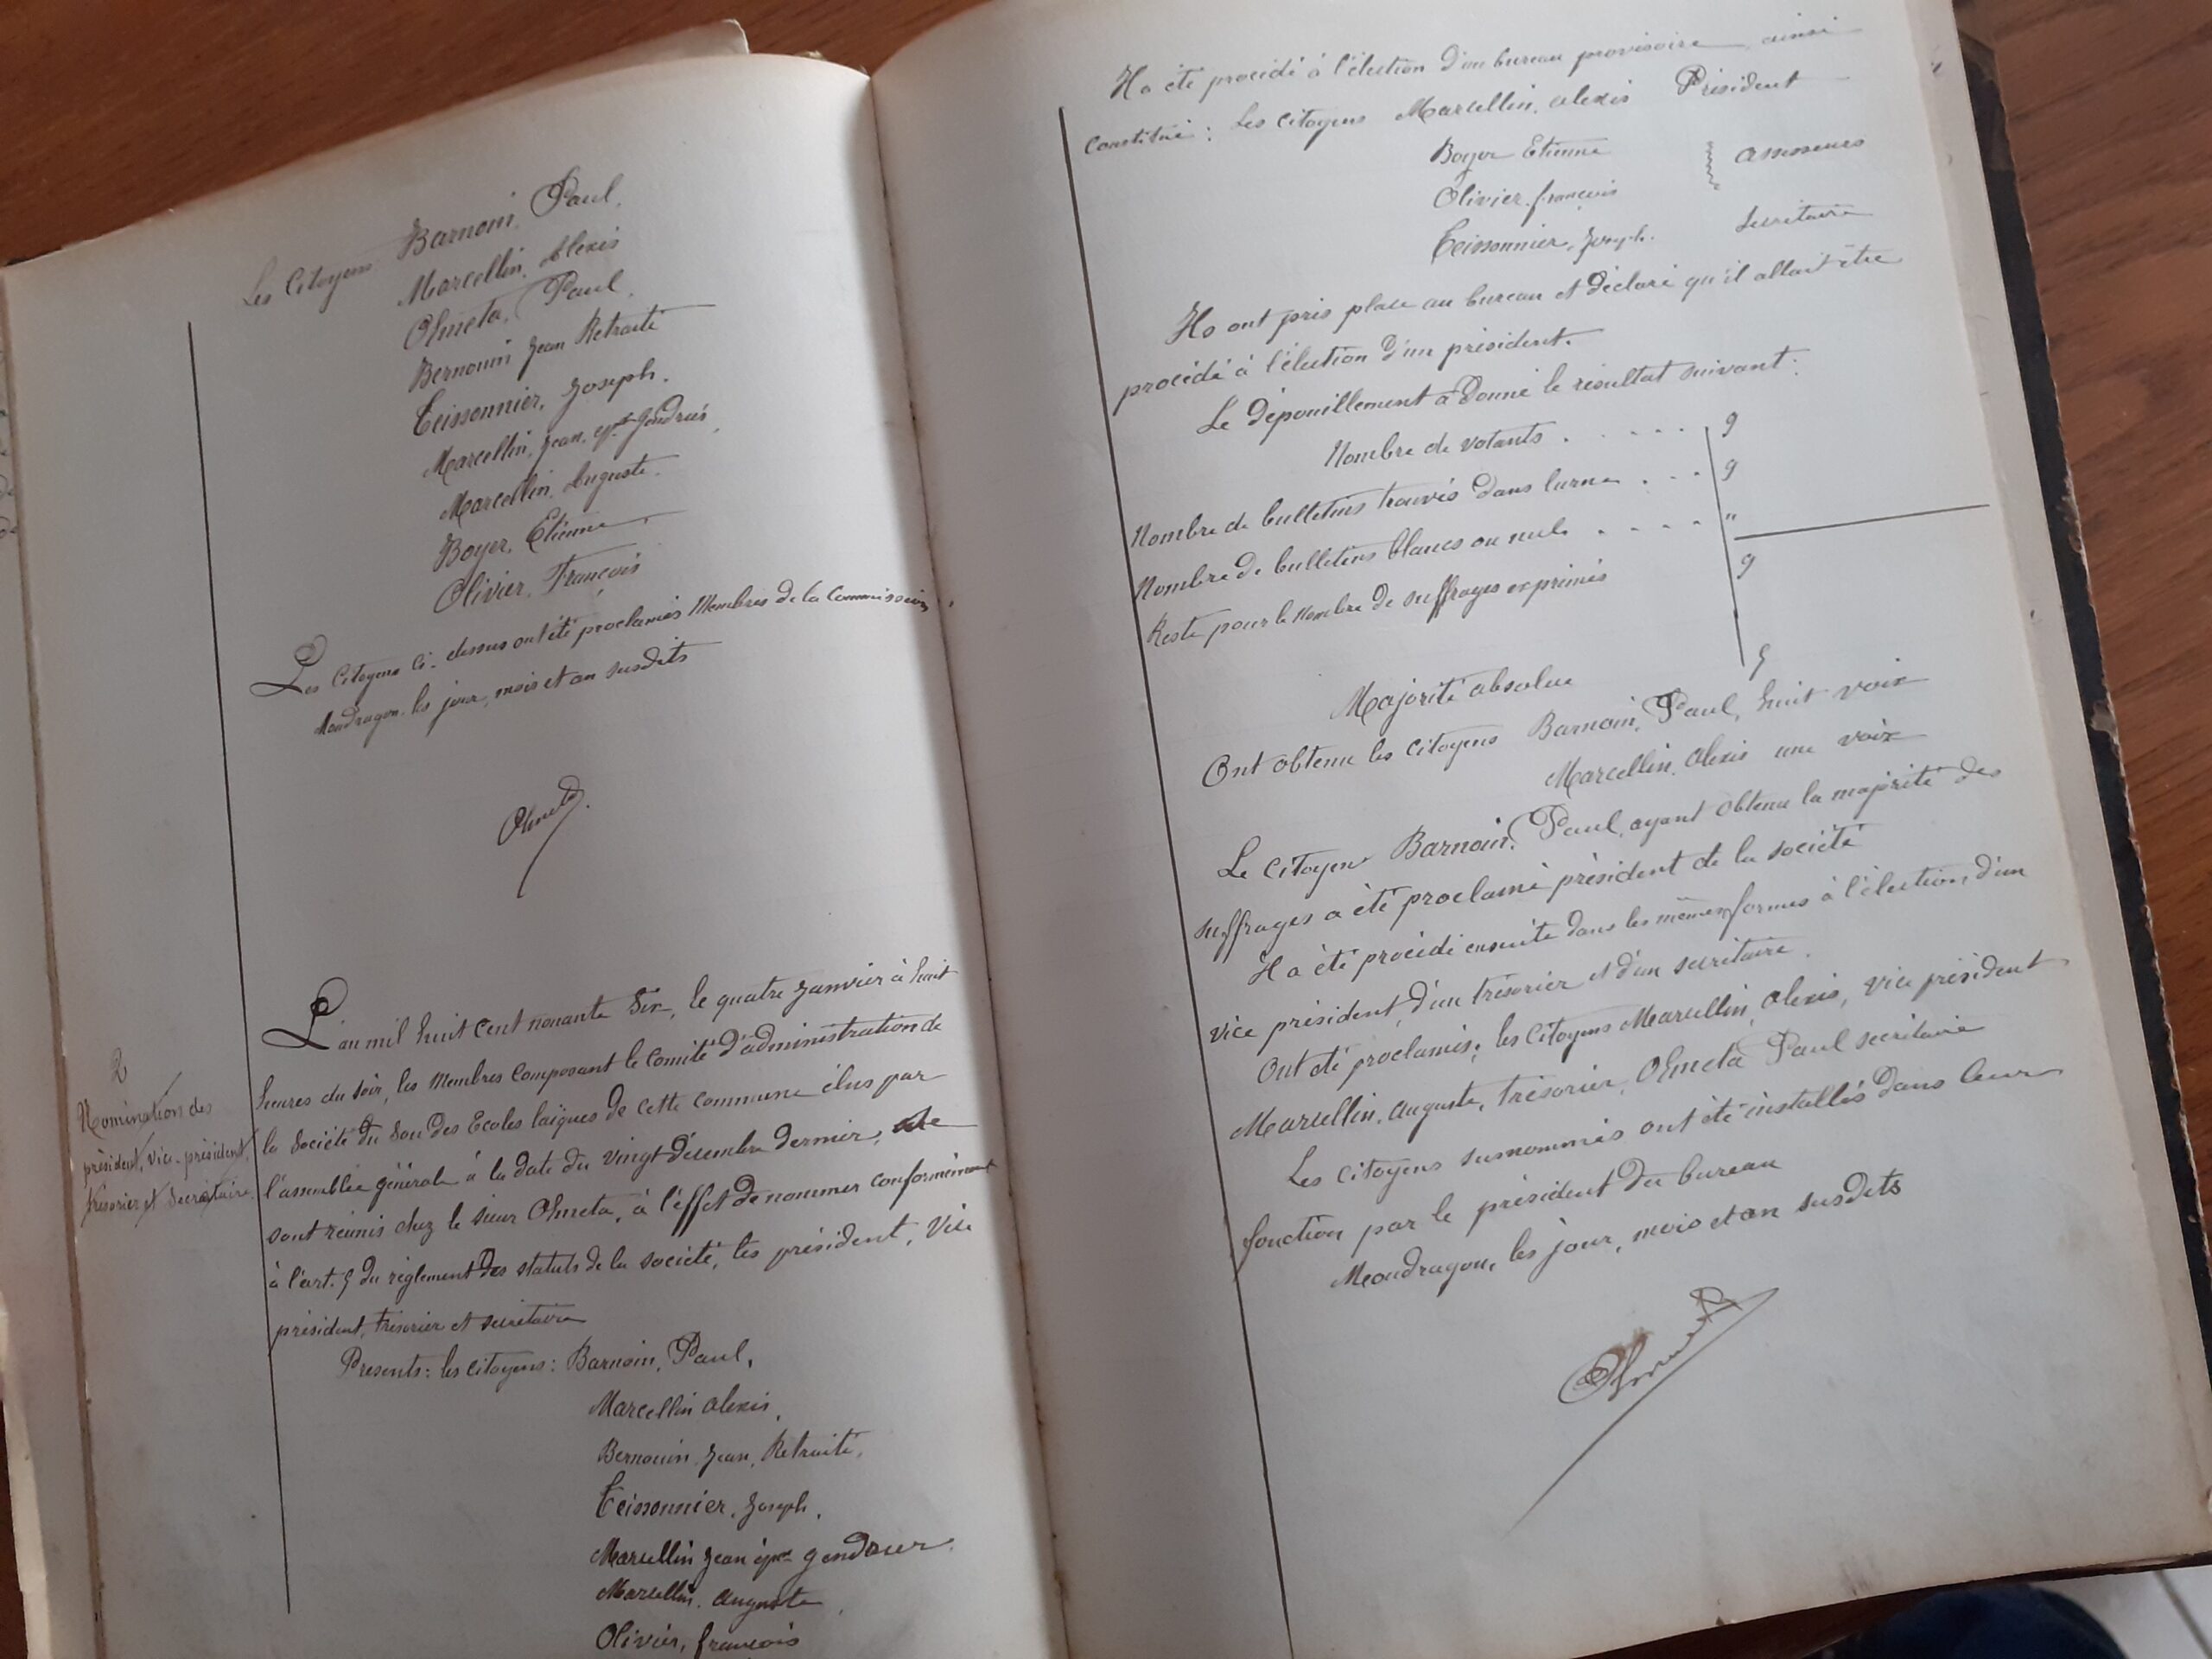 Les Citoyens Barnoin, Paul,
Marcellin, Alexis
Ohmeta, Paul,
Bernouin Jean Retraité
Teissonnier, Joseph.
Marcellin, Jean,
Marcellin, Auguste.
Boyer, Etienne
Olivier, François
Les Citoyens ci-dessus ont été proclamés Membres de la Commission,
Mondragon les jour, mois et an susdits
2
Nomination des
président, vice-président,
trésorier et Secrétaire
L'an mil huit cent nonante Six, le quatre Janvier à huit
heures du soir, les Membres composant le Comité d'administration de
la Société du Sou des Ecoles laïques de cette commune élus par
l'assemblée générale à la date du vingt Décembre dernier, se
sont réunis chez le sieur Ohmeta, à l'effet de nommer conformément
à l'art. 5 du règlement des statuts de la société, les président, Vice
président, trésorier et secrétaire
Présents: les citoyens: Barnoin, Paul,
Marcellin Alexis,
Bernouin, Jean, Retraité,
Teissonnier, Joseph,
Marcellin Jean
Marcellin, Auguste,
Olivier, françois
Il a été procédé à l'élection d'un bureau provisoire, ainsi
constitué: Les citoyens Marcellin, Alexis Président
Boyer Etienne
Olivier, françois assesseurs
Teissonnier, Joseph. Secrétaire
Ils ont pris place au bureau et déclaré qu'il allait être
procédé à l'élection d'un président.
Le dépouillement a donné le résultat suivant:
Nombre de votants . . . . . . 9
Nombre de bulletins trouvés dans l'urne . . . 9
Nombre de bulletins blancs ou nuls . . . . . "
Reste pour le nombre de suffrages exprimés 9
Majorité absolue 5
Ont obtenu les citoyens Barnoin, Paul, huit voix
Marcellin, Alexis une voix
Le citoyen Barnoin, Paul, ayant obtenu la majorité des
suffrages a été proclamé président de la société
Il a été procédé ensuite dans les mêmes formes à l'élection d'un
vice président, d'un trésorier et d'un secrétaire.
Ont été proclamés; les citoyens Marcellin, Alexis, vice président
Marcellin, Auguste, trésorier, Ohmeta Paul secrétaire
Les citoyens susnommés ont été installés dans leur
fonction par le président du bureau
Mondragon, les jour, mois et an susdits